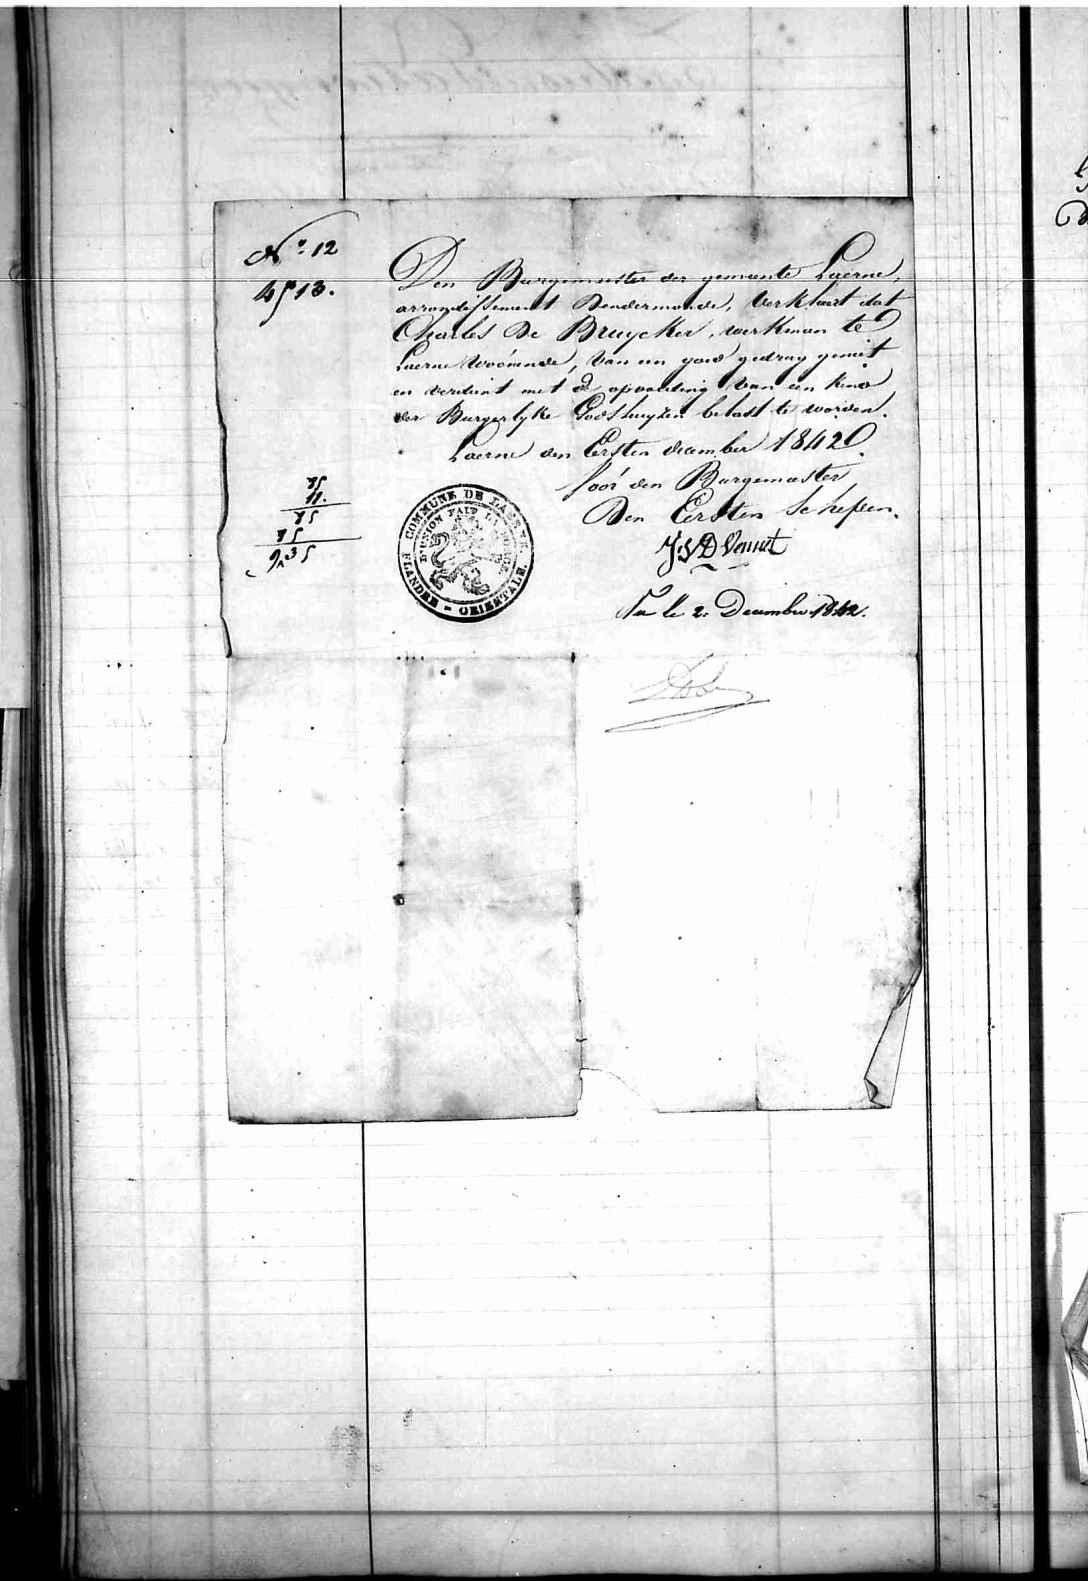 N.o 12
4513.
Den Burgemeester der gemeente Laerne,
arrondissement Dendermonde, verklaert dat
Charles De Bruycker, werkman te
Laerne woonende, van een goed gedrag geniet
en verdient met de opvoeding van een kind
der Burgerlyke Godshuyzen belast te worden.
Laerne den Eersten december 1842.
Voor den Burgemeester
Den Eersten Schepen.
75
11.
75
75
COMMUNE DE LAERNE
FLANDRE - ORIENTALE.
L'UNION FAIT LA FORCE
Vu le 2. Decembre 1842.